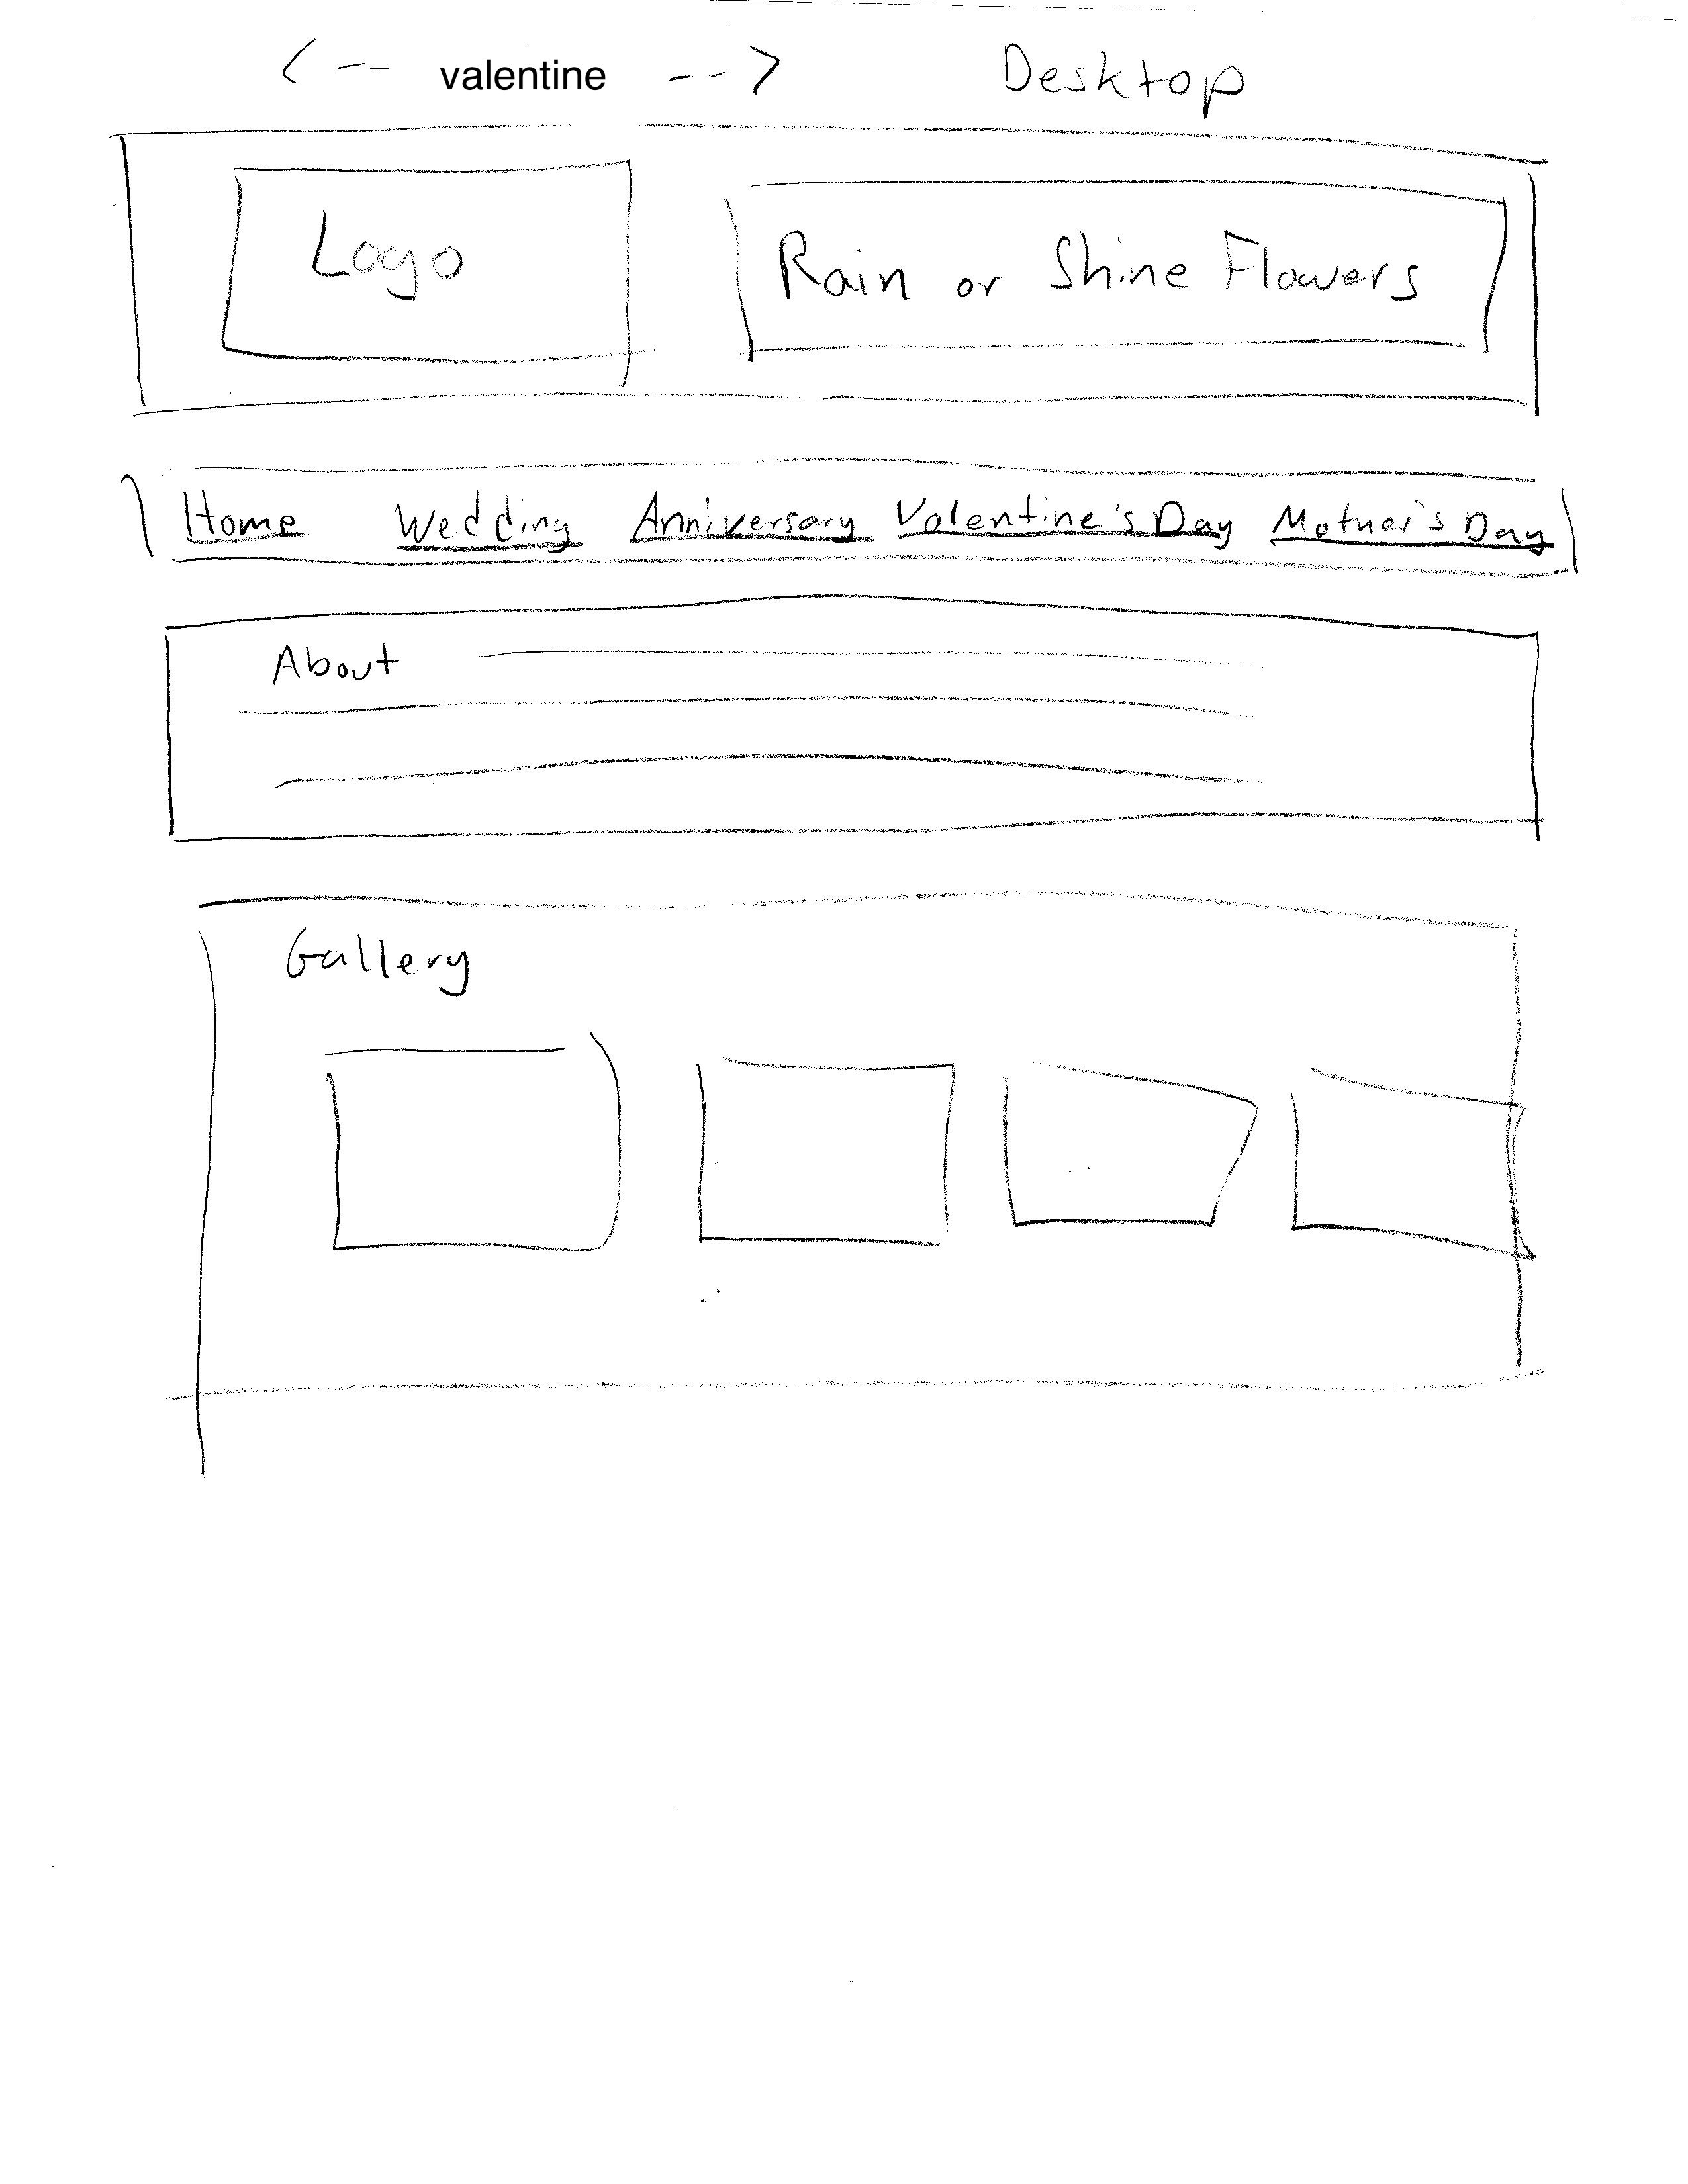 <-- valentine --> Desktop
Logo
Rain or Shine Flowers
Home Wedding Anniversary Valentine's Day Mother's Day
About
Gallery